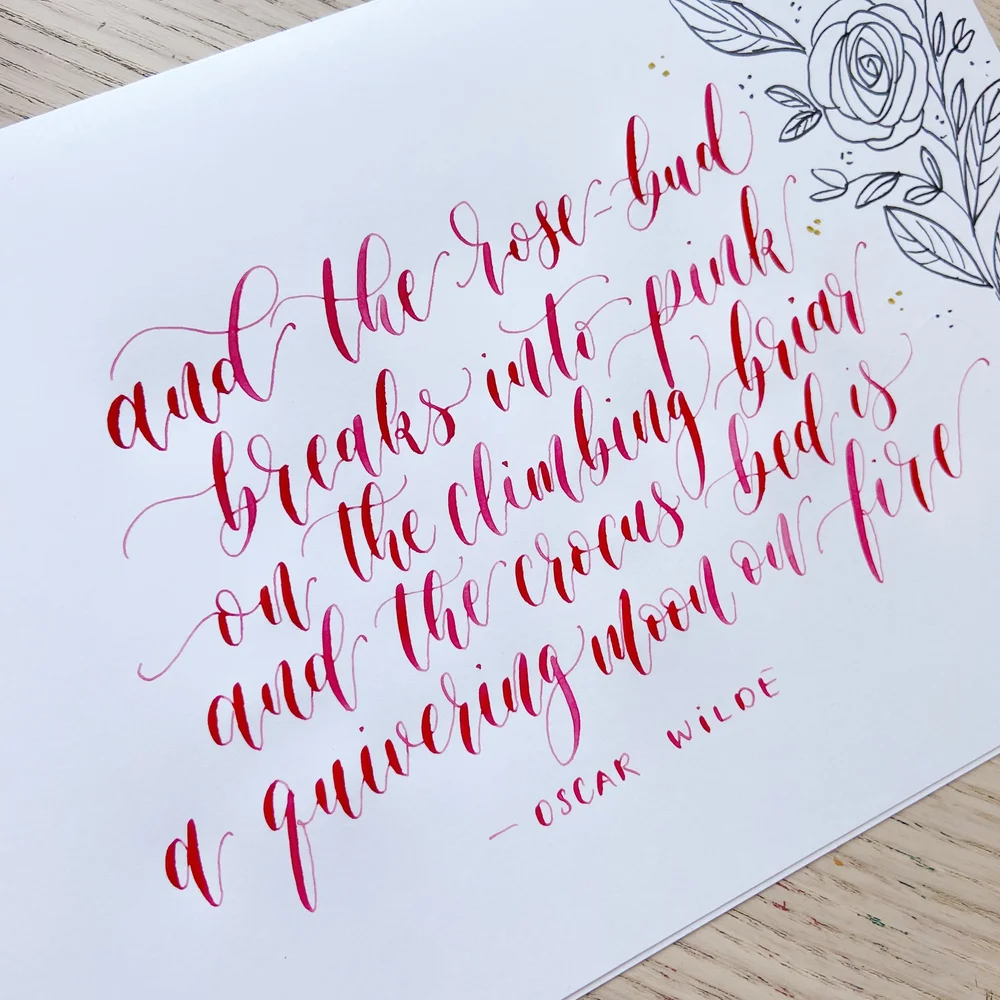 and the rose-bud
breaks into pink
on the climbing briar
and the crocus bed is
a quivering moon on fire
- OSCAR WILDE